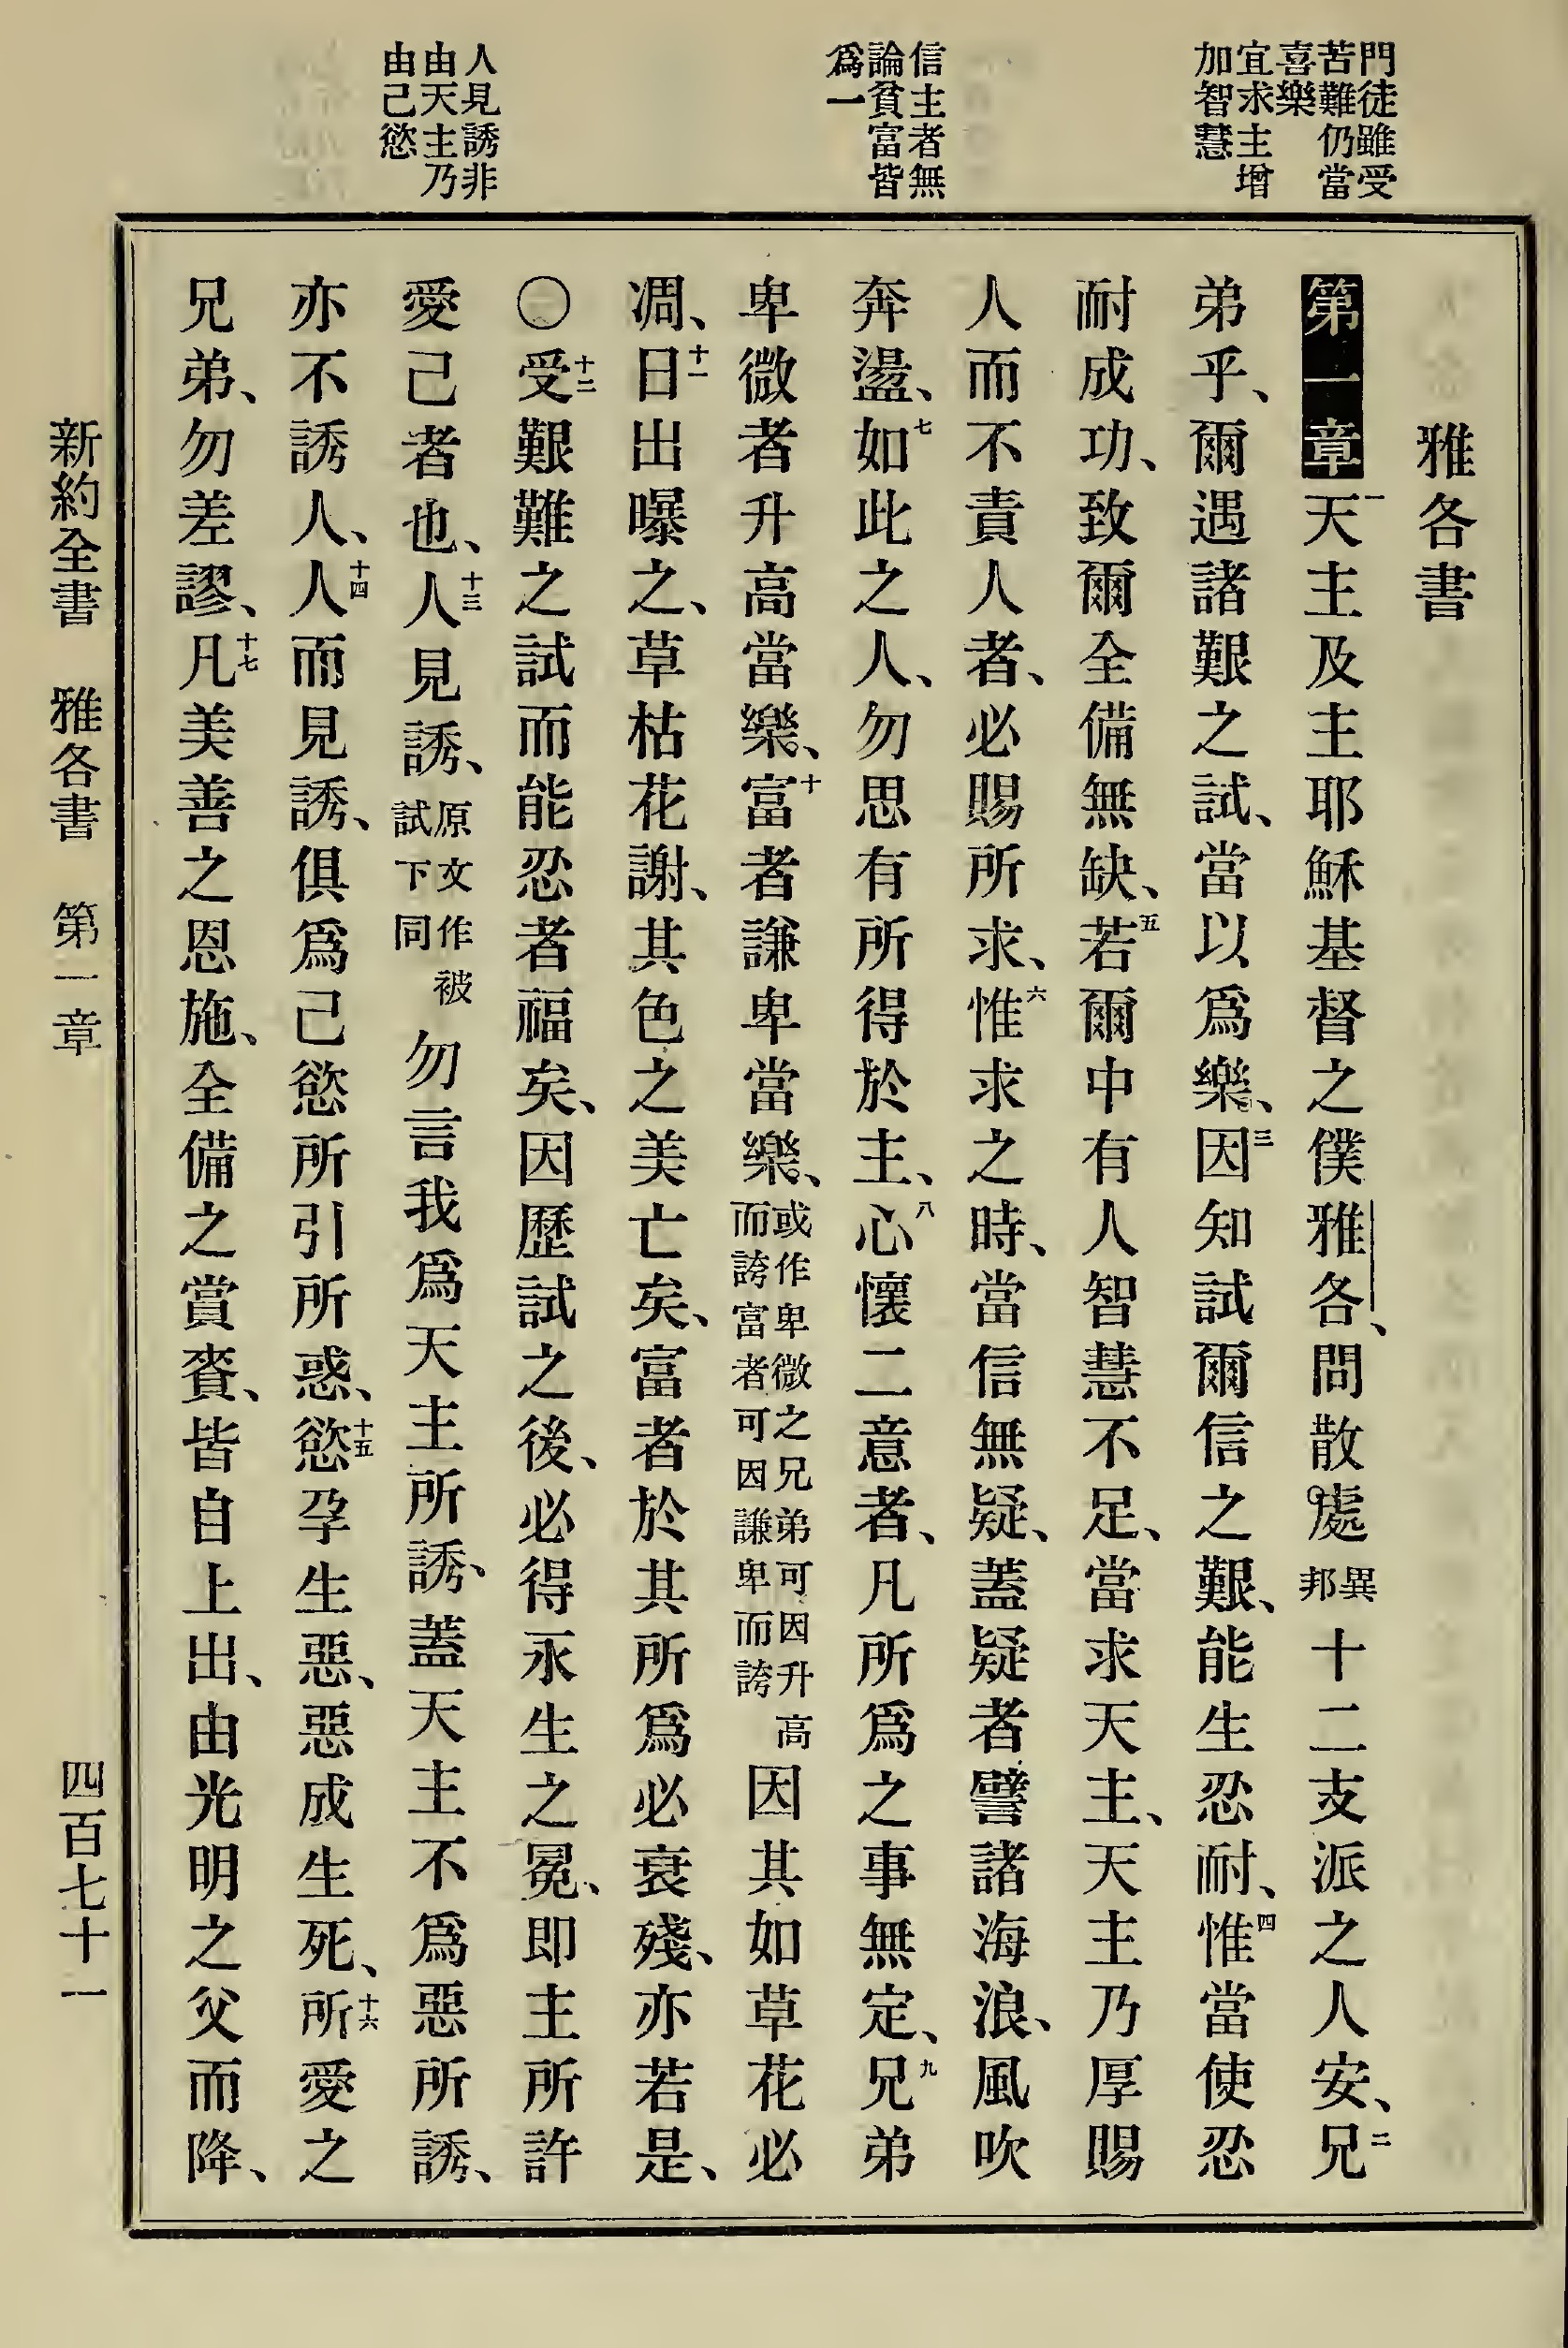 門徒雖受
苦難仍當
喜樂
宜求主增
加智慧
信主者無
論貧富皆
爲一
人見誘非
由天主乃
由己慾
雅各書
第一章一天主及主耶穌基督之僕雅各、問散處異邦十二支派之人安、二兄
弟乎、爾遇諸艱難之試、當以爲樂、三因知試爾信之艱、能生忍耐、四惟當使忍
耐成功、致爾全備無缺、五若爾中有人智慧不足、當求天主、天主乃厚賜
人而不責人者、必賜所求、六惟求之時、當信無疑、蓋疑者譬諸海浪、風吹
奔盪、七如此之人、勿思有所得於主、八心懷二意者、凡所爲之事無定、九兄弟
卑微者升高當樂、十富者謙卑當樂、或作卑微之兄弟可因升高而誇富者可因謙卑而誇因其如草花必
凋、十一日出曝之、草枯花謝、其色之美亡矣、富者於其所爲必衰殘、亦若是、
〇十二受艱難之試而能忍者福矣、因歷試之後、必得永生之冕、即主所許
愛己者也、十三人見誘、原文作被試下同勿言我爲天主所誘、蓋天主不爲惡所誘、
亦不誘人、十四人而見誘、俱爲己慾所引所惑、十五慾孕生惡、惡成生死、十六所愛之
兄弟、勿差謬、十七凡美善之恩施、全備之賞賚、皆自上出、由光明之父而降、
新約全書 雅各書 第一章 四百七十一